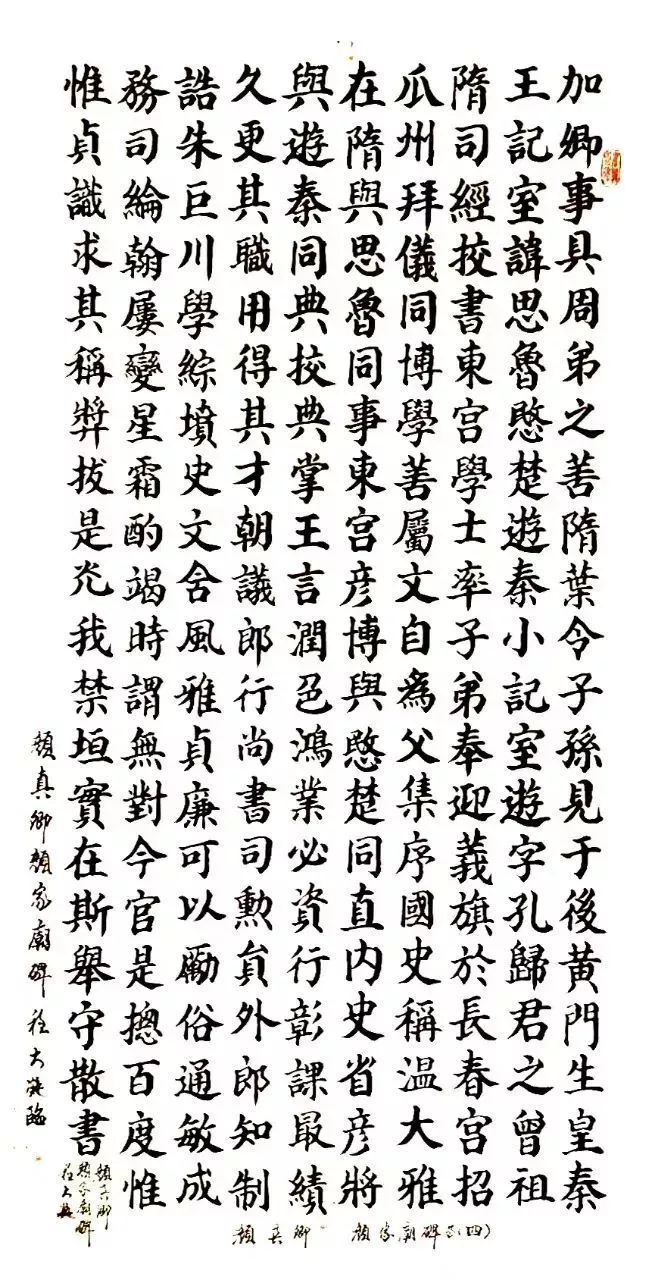 加卿事具周弟之善隋葉令子孫見于後黄門生皇秦
王記室諱思魯愍楚遊秦小記室遊字孔歸君之曾祖
隋司經挍書東宫學士率子弟奉迎義旗於長春宫招
瓜州拜儀同博學善屬文自為父集序國史稱温大雅
在隋與思魯同事東宫彦博與愍楚同直内史省彦將
與遊秦同典挍典掌王言潤色鴻業必資行彰課最績
久更其職用得其才朝議郎行尚書司勲貟外郎知制
誥朱巨川學綜墳史文含風雅貞廉可以勵俗通敏成
務司綸翰屢變星霜酌竭時謂無對今官是揔百度惟
惟貞識求其稱奬拔是光我禁垣實在斯舉守散書
顏真卿顏家廟碑 程大臨
顏真卿
顏家廟碑
程大
顏真卿 顏家廟碑(四)